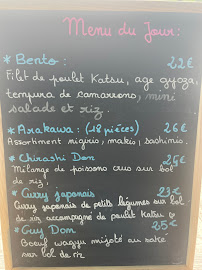 Menu du Jour:
* Bento: 22€
Filet de poulet Katsu, age gyoza,
tempura de camarrons, mini
salade et riz.
* Arakawa: (18 pièces) 26€
Assortiment nigiris, makis, sashimis.
* Chirashi Don 26€
Mélange de poissons crus sur bol
de riz.
* Curry japonais 23€
Curry japonais de petits légumes sur bol
de riz accompagné de poulet Katsu
* Guy Don 25€
Boeuf wagyu mijoté au sake
sur bol de riz